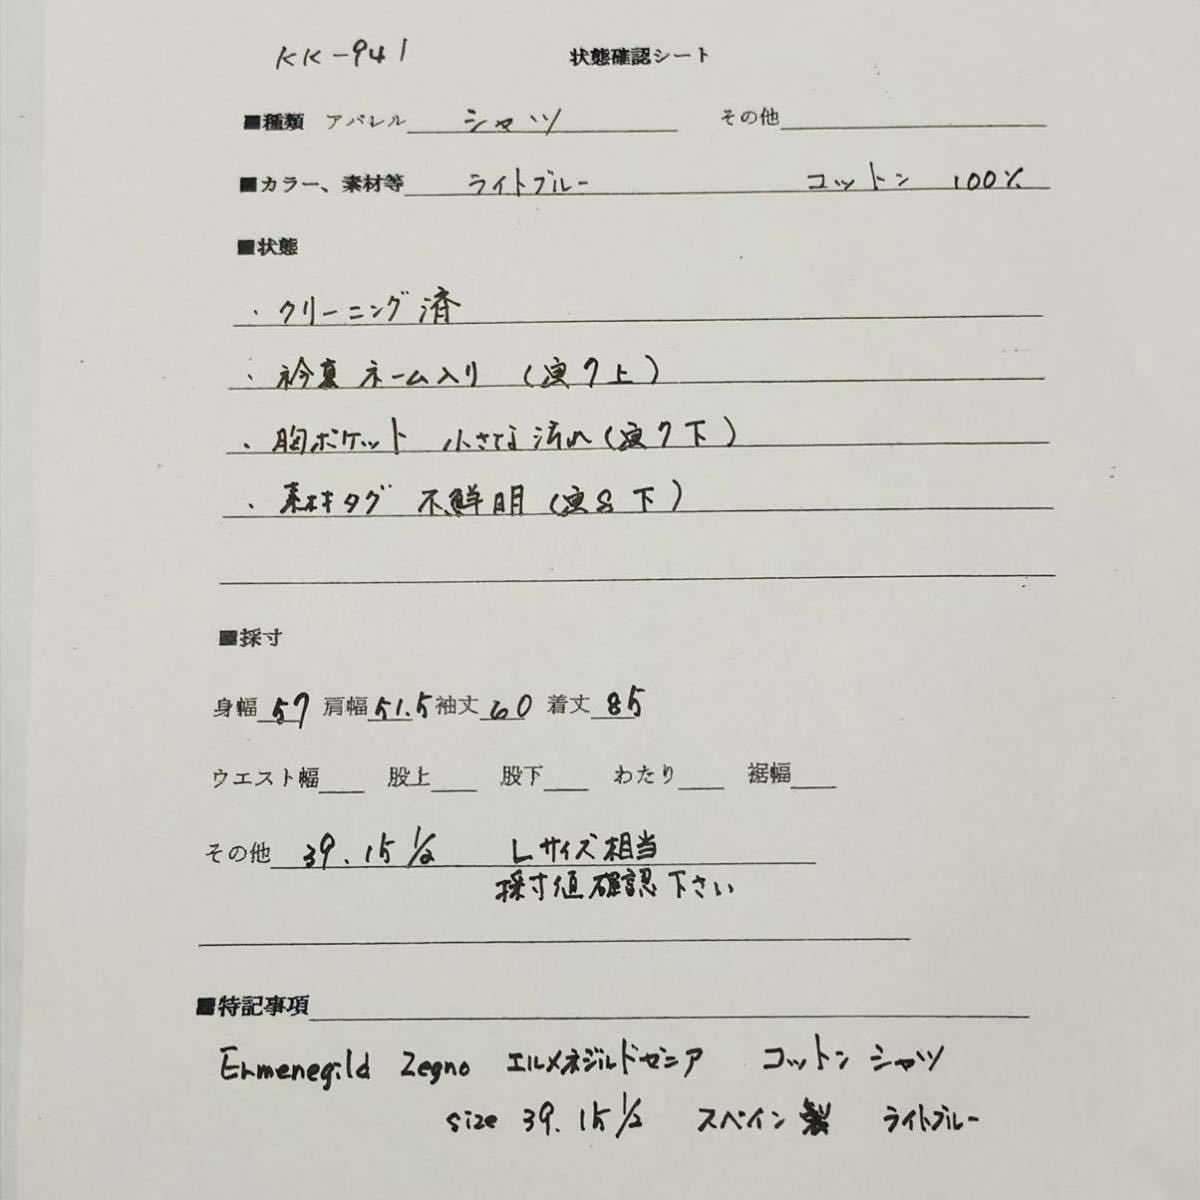 KK-941 状態確認シート
■種類 アパレル シャツ その他
■カラー、素材等 ライトブルー コットン 100%
■状態
・クリーニング済
・衿裏 ネーム入り (写7上)
・胸ポケット 小さな汚れ (写7下)
・素材タグ 不鮮明 (写8下)
■採寸
身幅 57 肩幅 51.5 袖丈 60 着丈 85
ウエスト幅 股上 股下 わたり 裾幅
その他 39. 15 1/2 Lサイズ相当
採寸値確認下さい
■特記事項
Ermenegild Zegno エルメネジルドゼニア コットン シャツ
size 39. 15 1/2 スペイン製 ライトブルー